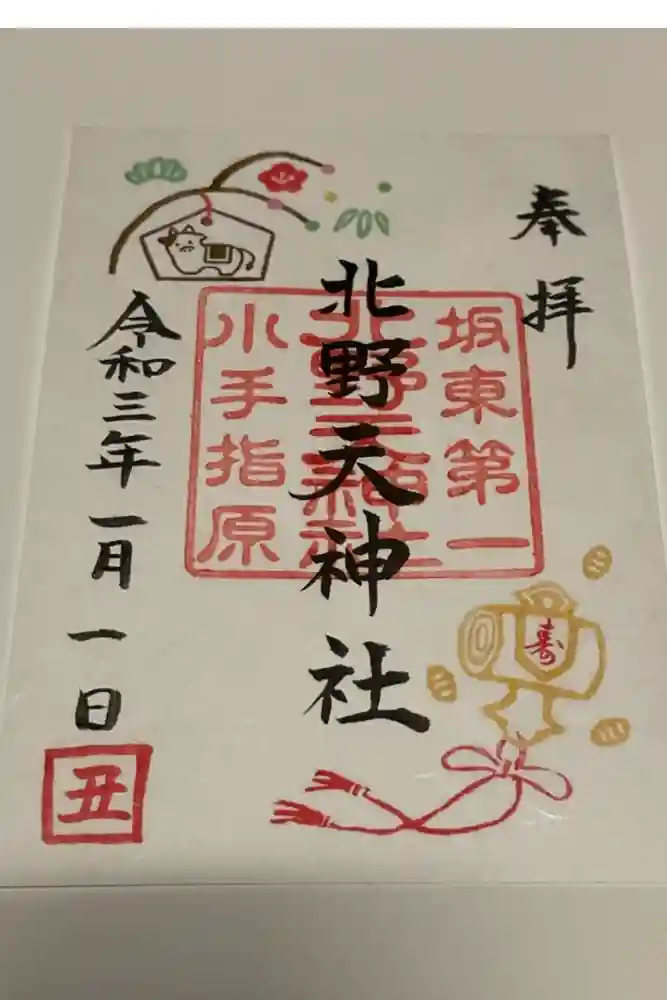 奉拝
坂東第一
北野天神社
小手指原
令和三年一月一日
丑
寿